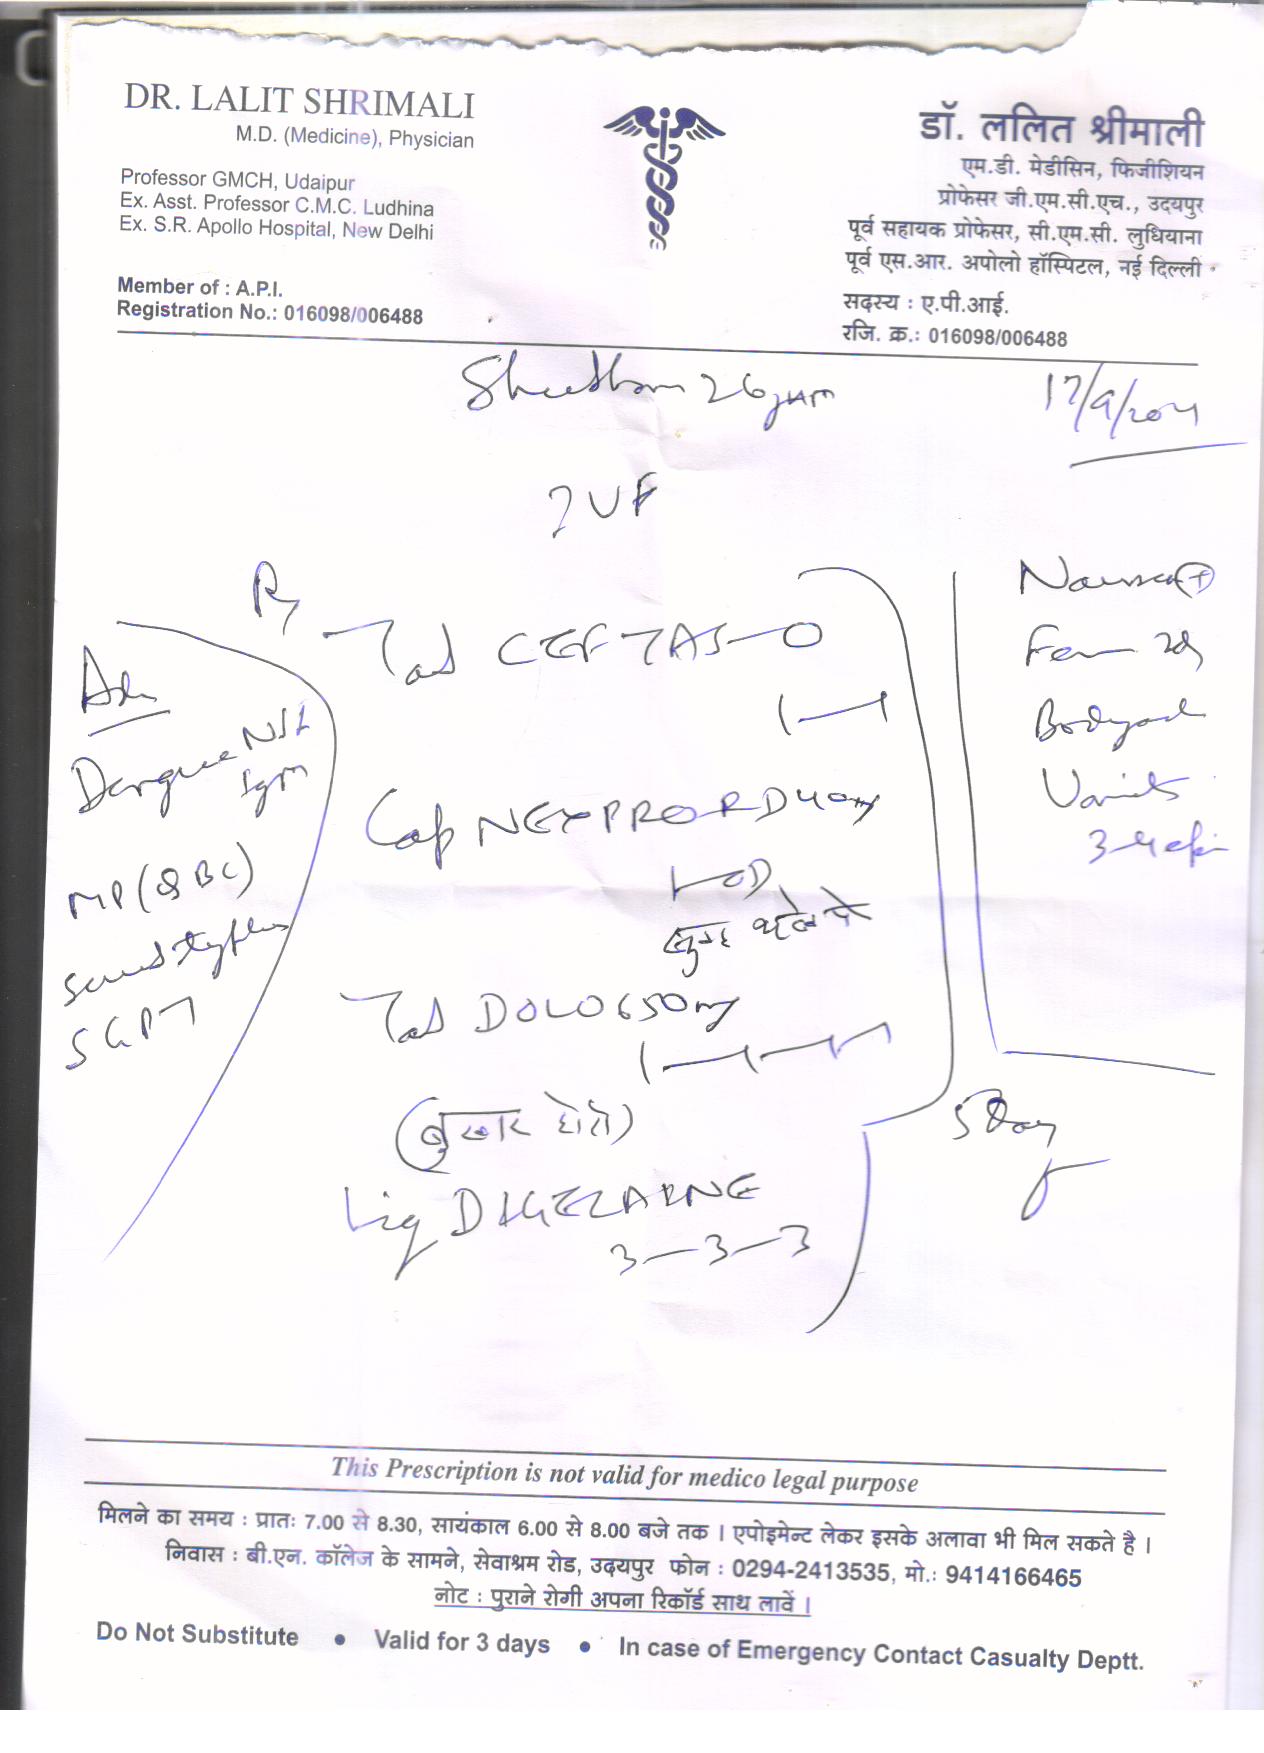 DR. LALIT SHRIMALI
M.D. (Medicine), Physician
Professor GMCH, Udaipur
Ex. Asst. Professor C.M.C. Ludhina
Ex. S.R. Apollo Hospital, New Delhi
Member of : A.P.I.
Registration No.: 016098/006488
डॉ. ललित श्रीमाली
एम.डी. मेडीसिन, फिजीशियन
प्रोफेसर जी.एम.सी.एच., उदयपुर
पूर्व सहायक प्रोफेसर, सी.एम.सी. लुधियाना
पूर्व एस.आर. अपोलो हॉस्पिटल, नई दिल्ली
सदस्य : ए.पी.आई.
रजि. क्र.: 016098/006488
26
17/9/2011
?UF
Nausea +
Bodyach
Rx
Tab CEFTAS-O
1—1
Cap NEXPRO RD 40mg
1—OD
Tab DOLO 650mg
1—1—1
(बुखार होतो)
Liq DIGERAINE
3—3—3
5 Day
Adv
Dengue NS1
IgM
MP (QBC)
SGPT
This Prescription is not valid for medico legal purpose
मिलने का समय : प्रातः 7.00 से 8.30, सायंकाल 6.00 से 8.00 बजे तक । एपोइमेन्ट लेकर इसके अलावा भी मिल सकते है ।
निवास : बी.एन. कॉलेज के सामने, सेवाश्रम रोड, उदयपुर फोन : 0294-2413535, मो.: 9414166465
नोट : पुराने रोगी अपना रिकॉर्ड साथ लावें ।
Do Not Substitute • Valid for 3 days • In case of Emergency Contact Casualty Deptt.